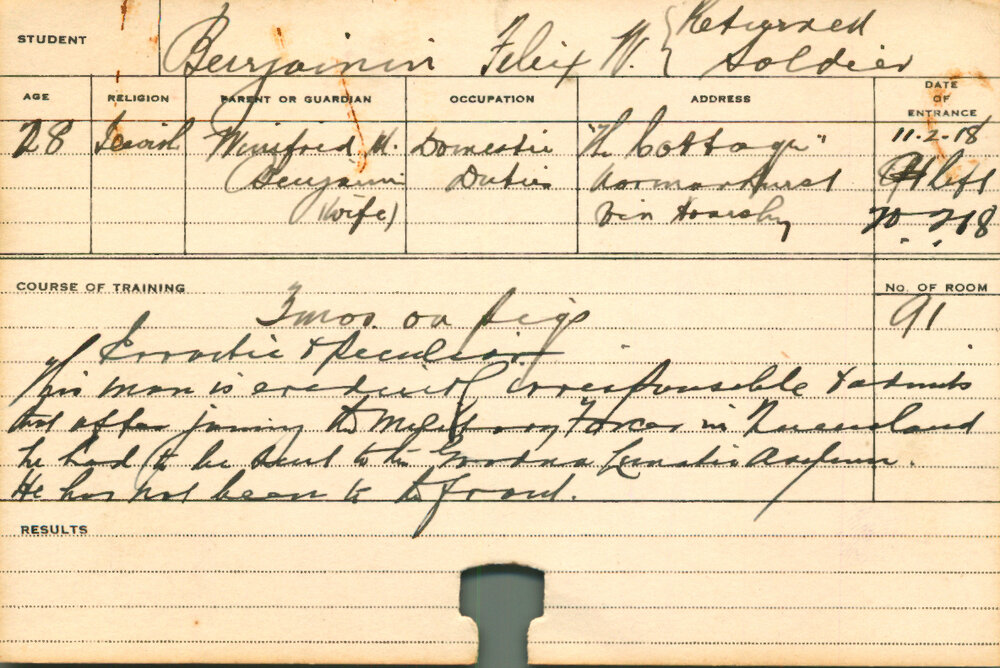 STUDENT Benjamin Felix W. { Returned
Soldier
AGE RELIGION PARENT OR GUARDIAN OCCUPATION ADDRESS DATE OF ENTRANCE
28 Jewish Winifred M. Domestic "The Cottage" 11-2-18
Benjamin Duties Normanhurst left
(wife) via Hornsby 20-2-18
COURSE OF TRAINING No. OF ROOM
3 mos. on pigs 91
Erratic & Peculiar
This man is evidently irresponsible & admits
that after joining the Military Forces in Queensland
he had to be sent to the Goodna Lunatic Asylum.
He has not been to the front.
RESULTS